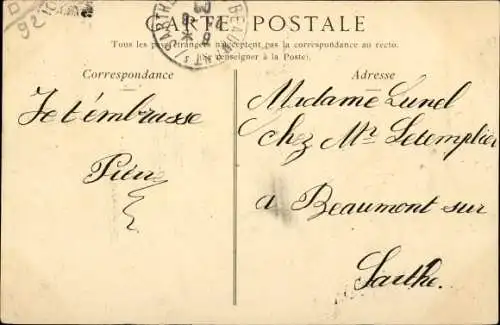 CARTE POSTALE
Tous les pays étrangers n'acceptent pas la correspondance au recto.
(se renseigner à la Poste).
Correspondance
Adresse
Je t'embrasse
Madame Lunel
Chez Mr Letemplier
a Beaumont sur
Sarthe.
BEAUMONT
SARTHE
92